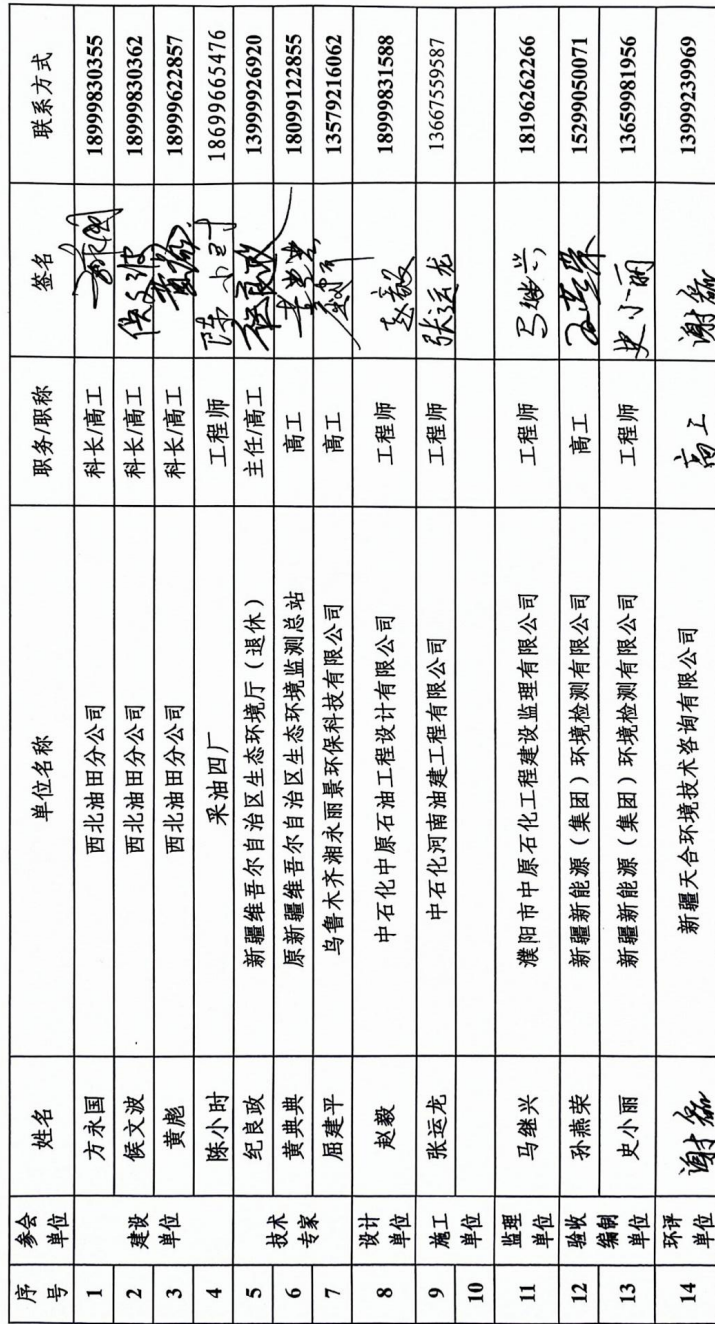 序号 参会单位 姓名 单位名称 职务/职称 签名 联系方式
1 建设单位 方永国 西北油田分公司 科长/高工 18999830355
2 侯文波 西北油田分公司 科长/高工 侯文波 18999830362
3 黄彪 西北油田分公司 科长/高工 18999622857
4 陈小时 采油四厂 工程师 陈小时 18699665476
5 技术专家 纪良政 新疆维吾尔自治区生态环境厅（退休） 主任/高工 13999926920
6 黄典典 原新疆维吾尔自治区生态环境监测总站 高工 18099122855
7 屈建平 乌鲁木齐湘永丽景环保科技有限公司 高工 13579216062
8 设计单位 赵毅 中石化中原石油工程设计有限公司 工程师 赵毅 18999831588
9 施工单位 张运龙 中石化河南油建工程有限公司 工程师 张运龙 13667559587
10
11 监理单位 马继兴 濮阳市中原石化工程建设监理有限公司 工程师 马继兴 18196262266
12 验收编制单位 孙燕荣 新疆新能源（集团）环境检测有限公司 高工 15299050071
13 史小丽 新疆新能源（集团）环境检测有限公司 工程师 史小丽 13659981956
14 环评单位 谢磊 新疆天合环境技术咨询有限公司 高工 谢磊 13999239969